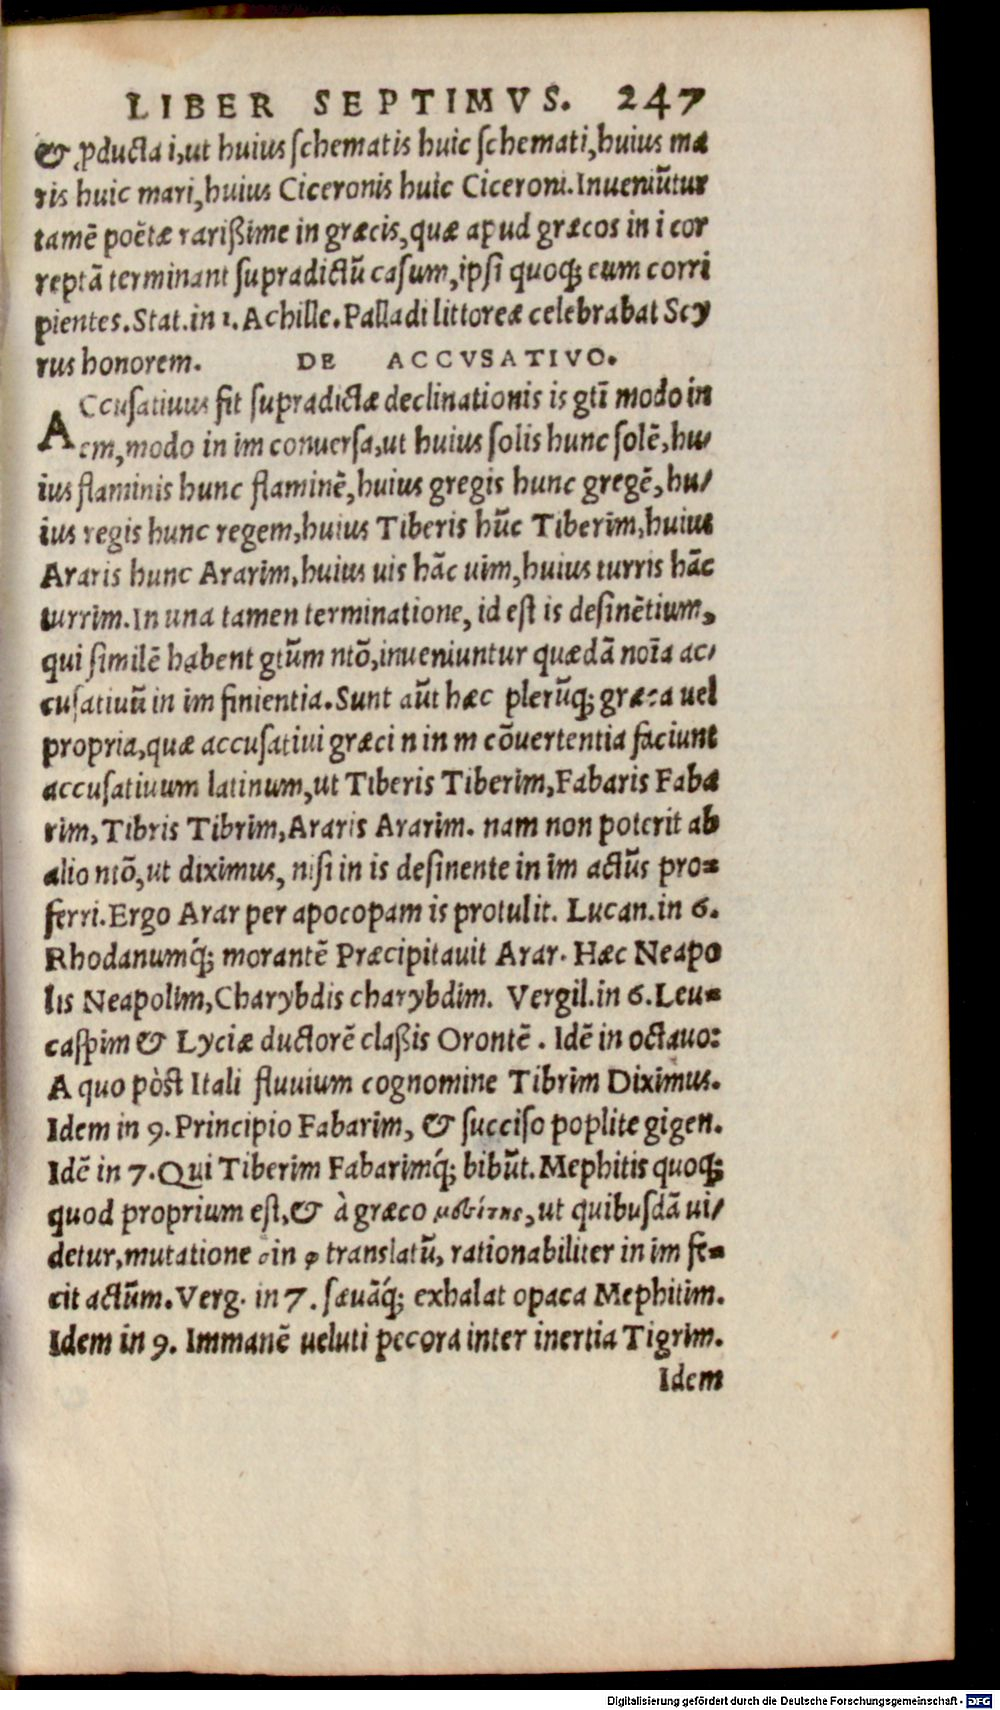 LIBER SEPTIMVS. 247
& ꝓducta i, ut huius schematis huic schemati, huius ma
ris huic mari, huius Ciceronis huic Ciceroni. Inueniūtur
tamē poētæ rarißime in græcis, quæ apud græcos in i cor
reptā terminant supradictū casum, ipsi quoqꝫ eum corri
pientes. Stat. in 1. Achille. Palladi littoreæ celebrabat Scy
rus honorem. DE ACCVSATIVO.
ACcusatiuus fit supradictæ declinationis is gtī modo in
em, modo in im conuersa, ut huius solis hunc solē, hu/
ius flaminis hunc flaminē, huius gregis hunc gregē, hu/
ius regis hunc regem, huius Tiberis hūc Tiberim, huius
Araris hunc Ararim, huius uis hāc uim, huius turris hāc
turrim. In una tamen terminatione, id est is desinētium,
qui similē habent gtūm ntō, inueniuntur quædā noīa ac/
cusatiuū in im finientia. Sunt aūt hæc plerūqꝫ græca uel
propria, quæ accusatiui græci n in m cōuertentia faciunt
accusatiuum latinum, ut Tiberis Tiberim, Fabaris Faba
rim, Tibris Tibrim, Araris Ararim. nam non poterit ab
alio ntō, ut diximus, nisi in is desinente in im actūs pro=
ferri. Ergo Arar per apocopam is protulit. Lucan. in 6.
Rhodanumq́ꝫ morantē Præcipitauit Arar. Hæc Neapo
lis Neapolim, Charybdis charybdim. Vergil. in 6. Leu=
caspim & Lyciæ ductorē claßis Orontē. Idē in octauo:
A quo pòst Itali fluuium cognomine Tibrim Diximus.
Idem in 9. Principio Fabarim, & succiso poplite gigen.
Idē in 7. Qui Tiberim Fabarimq́ꝫ bibūt. Mephitis quoqꝫ
quod proprium est, & à græco , ut quibusdā ui/
detur, mutatione in φ translatū, rationabiliter in im fe=
cit actūm. Verg. in 7. sæuāq́ꝫ exhalat opaca Mephitim.
Idem in 9. Immanē ueluti pecora inter inertia Tigrim.
Idem
Digitalisierung gefördert durch die Deutsche Forschungsgemeinschaft - DFG